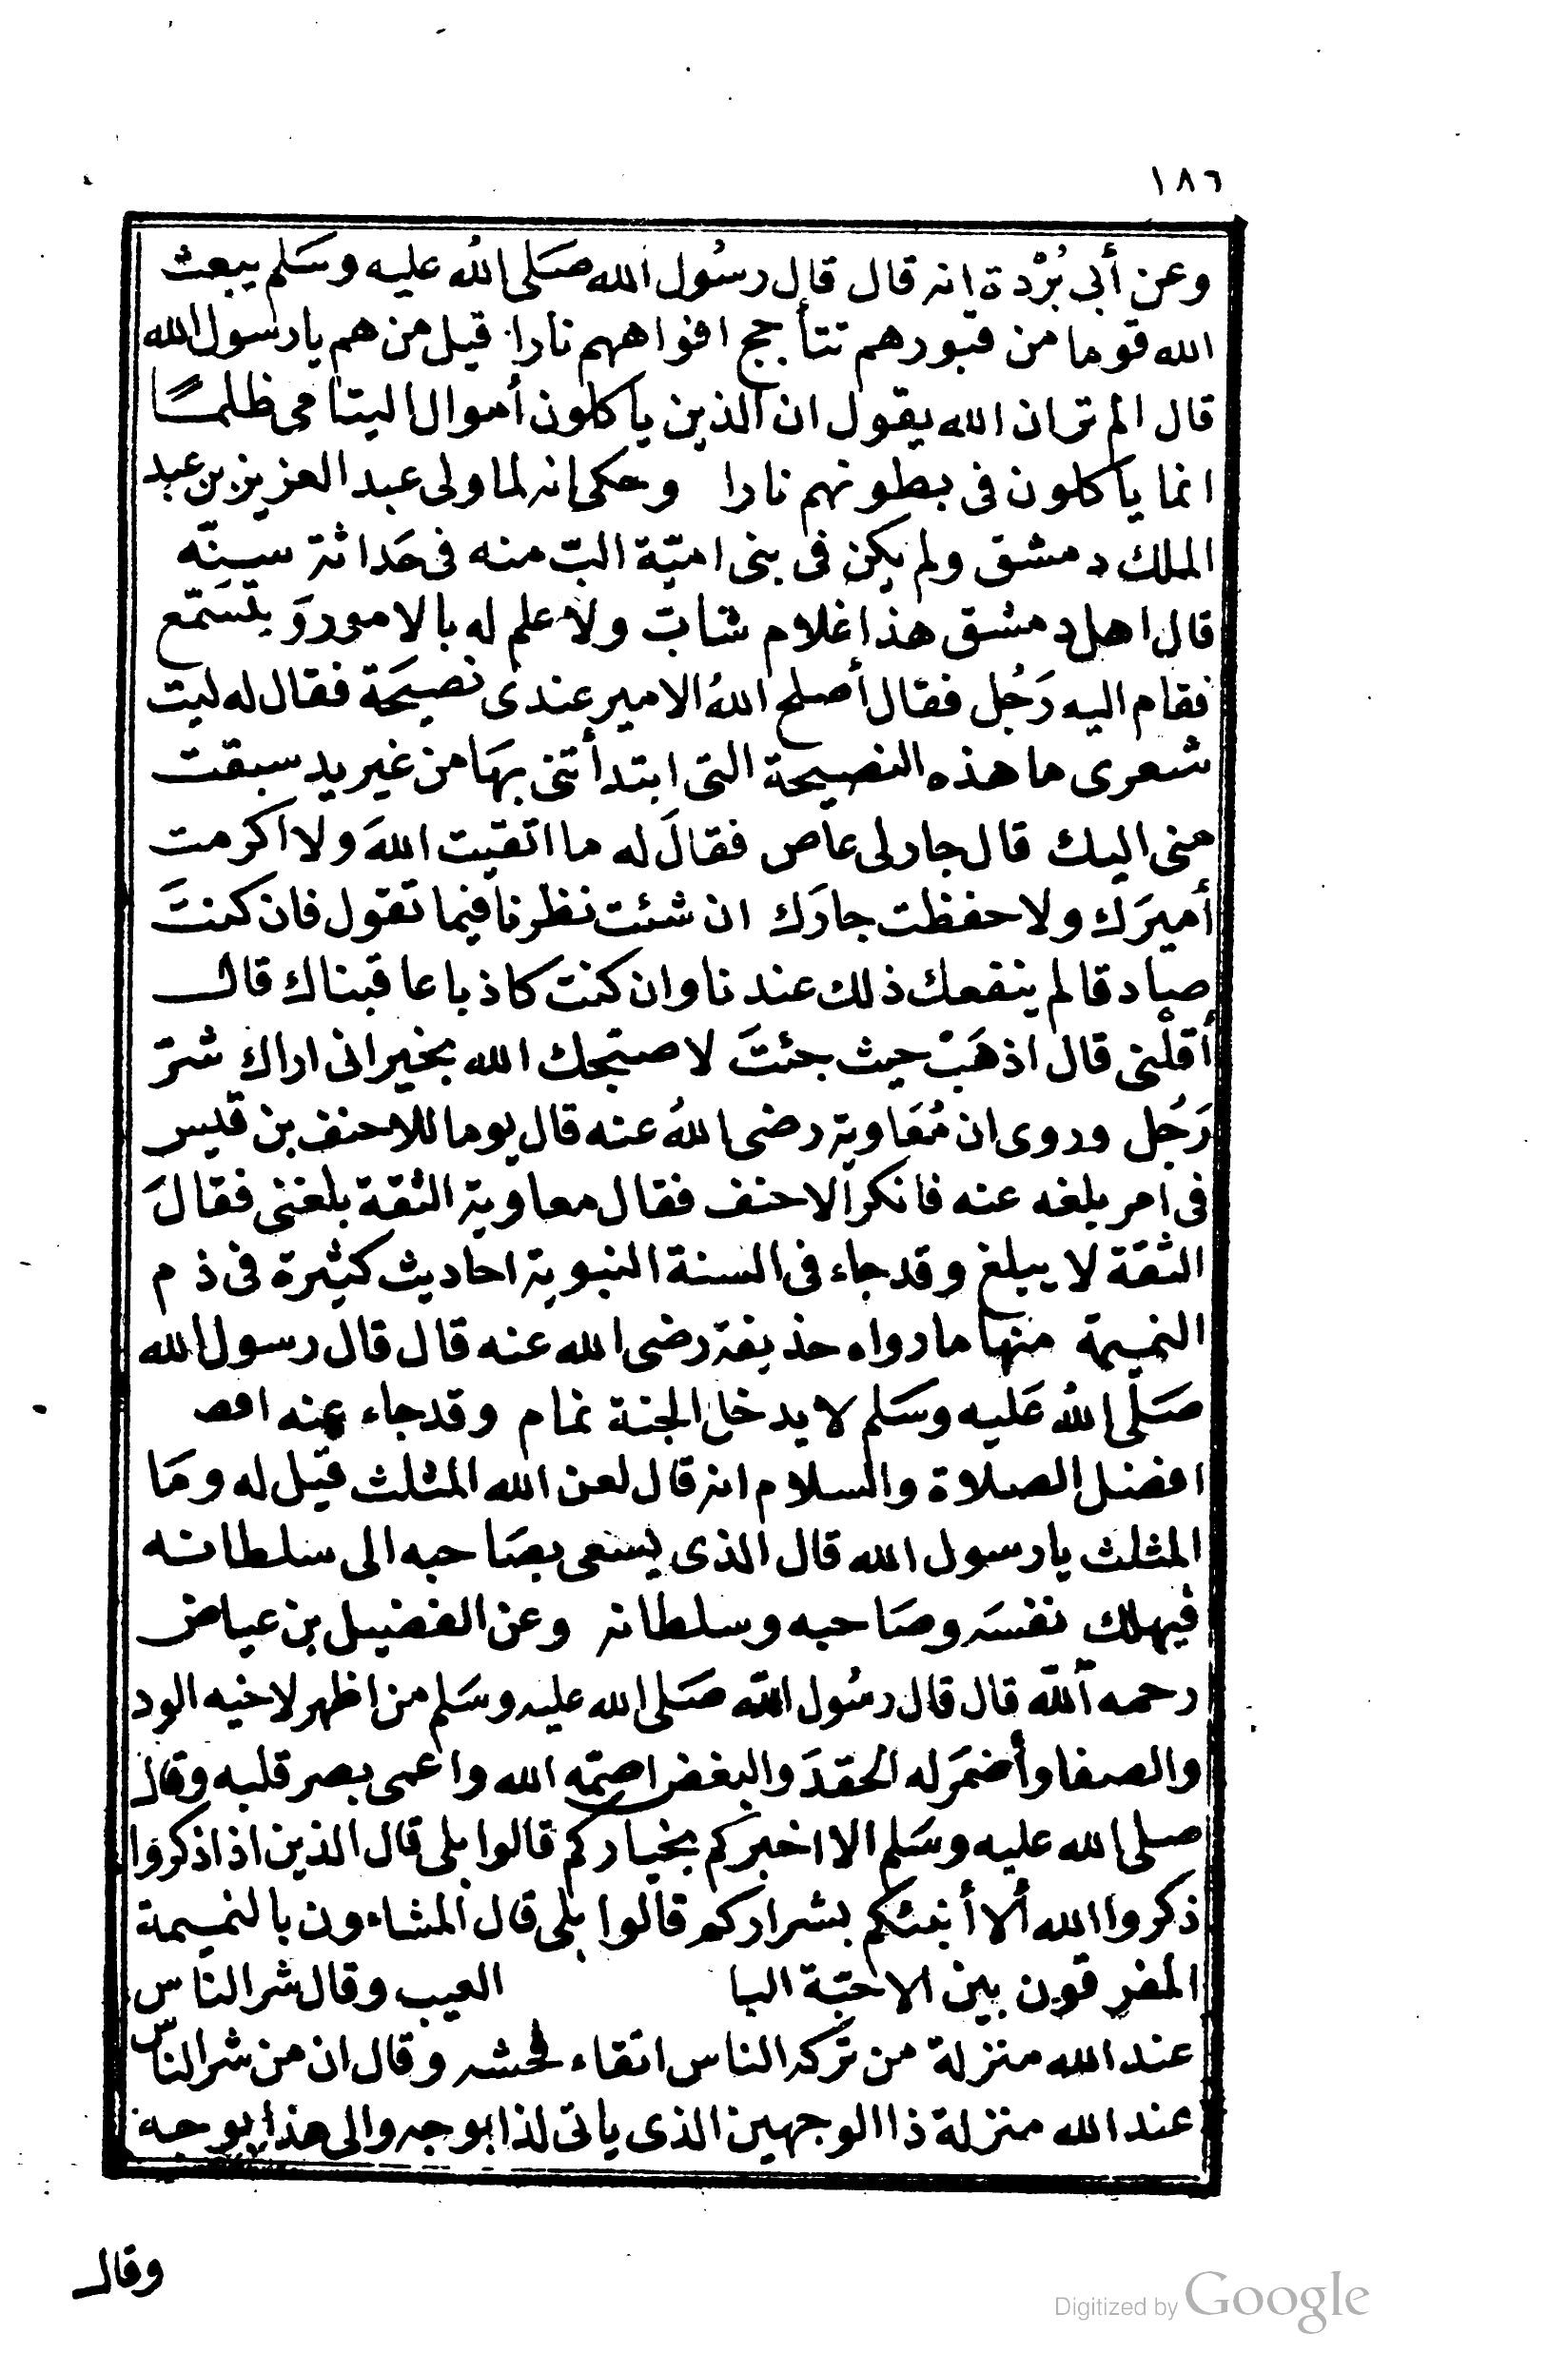 ١٨٦
وعن أبى بُرْدة انه قال قال رسُول الله صَلى اللهُ عليه وسَلم يبعث
الله قوما من قبورهم تتأجج افواههم نارا قيل من هم يا رسول الله
قال الم تر ان الله يقول ان الذين ياكلون أموال اليتامى ظلمًا
انما ياكلون فى بطونهم نارا وحكى انه لما ولى عبد العزيز بن عبد
الملك دمشق ولم يكن فى بنى اميّة البّ منه فى حَداثة سينّه
قال اهل دمشق هذا غلام شابّ ولا علم له بالامور وَيَسَمّع
فقام اليه رَجُل فقال أصلح اللهُ الامير عندى نصيحَة فقال له ليت
شعرى ما هذه النصيحة التى ابتدأتنى بهَا من غير يد سبقت
منى اليك قال جار لى عاص فقالَ له ما اتقيت اللهَ ولا اكرمت
أميرَك ولا حفظت جارَك ان شئت نظرنا فيما تقول فان كنتَ
صادقا لم ينفعك ذلك عندنا وان كنت كاذبا عاقبناك قال
أقلْنى قال اذهَبْ حيث جئتَ لا صبّحك الله بخير انى اراك شرّ
رَجُل وروى ان مُعَاوية رضى اللهُ عنه قال يوما للاحنف بن قليس
فى امر بلغه عنه فانكر الاحنف فقال معاوية الثقة بلغنى فقالَ
الثقة لا يبلغ وقد جاء فى السنة النبوية احاديث كثيرة فى ذم
النميمة منها ما رواه حذيفة رضى الله عنه قال قال رسول الله
صَلى اللهُ عَليه وسَلم لا يدخل الجنة نمام وقد جاء عنه افص
افضل الصلاة والسلام انه قال لعن الله المثلث قيل له ومَا
المثلث يا رسول الله قال الذى يسعى بصَاحبه الى سلطانه
فيهلك نفسَه وصَاحبه وسلطانه وعن الفضيل بن عياض
رحمه الله قال قال رسُول الله صَلى الله عليه وسَلم من اظهر لاخيه الود
والصفا وأضمَر له الحقدَ والبغض اصمّه الله واعمى بصر قلبه وقال
صلى الله عليه وسَلم الا اخبركم بخياركم قالوا بلى قال الذين اذا ذكروا
ذكروا الله ألا أنبئكم بشراركم قالوا بلى قال المشاءون بالنميمة
المفرقون بين الاحبّة البا العيب وقال شر الناس
عند الله منزلة من تركه الناس اتقاء فحشه وقال ان من شر الناس
عند الله منزلة ذا الوجهين الذى ياتى لذا بوجه والى هذا بوجه
وقال
Digitized by Google